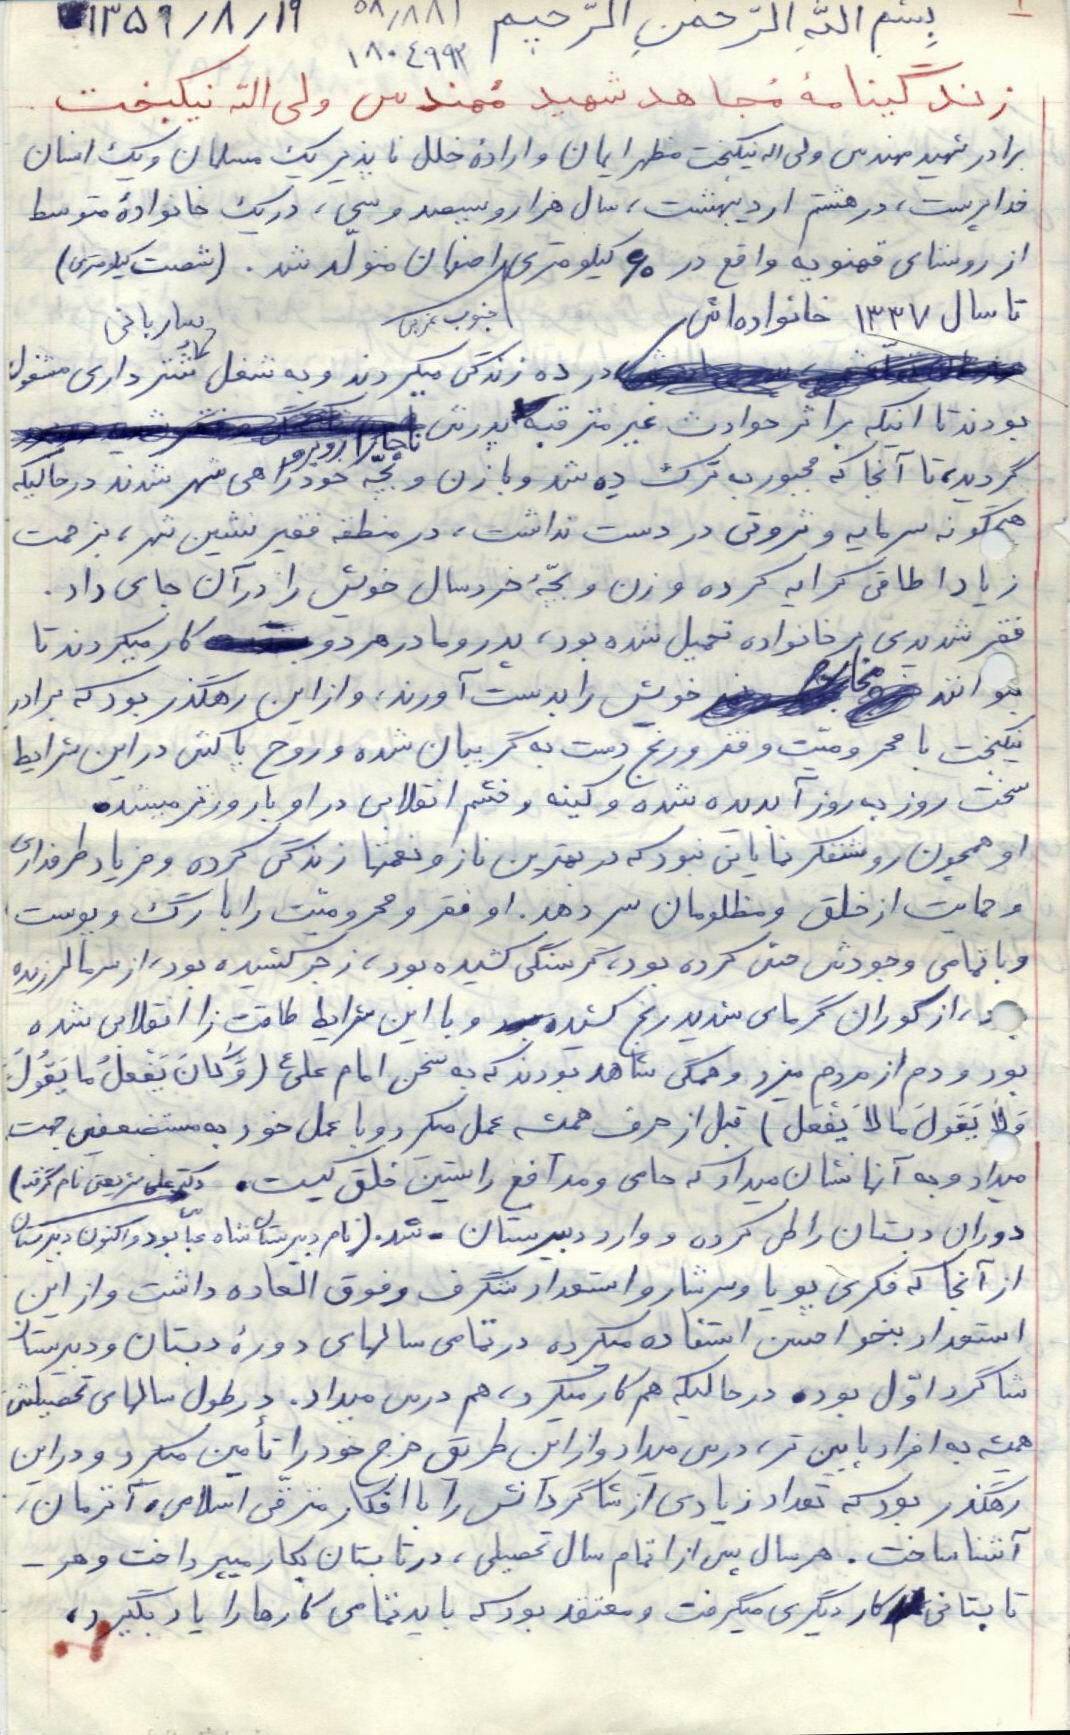 بِسْمِ اللّهِ الرَّحْمنِ الرَّحِیمِ ۵۸/۸۸۱ ۱۳۵۹/۸/۱۹
۱۸۰٤۹۹۲
زندگینامهٔ مُجاهد شهید مُهندس ولی اللّه نیکبخت
برادر شهید مهندس ولی اله نیکبخت مظهر ایمان و ارادهٔ خلل ناپذیر یک مسلمان و یک انسان
خداپرست، در هشتم اردیبهشت، سال هزار و سیصد و سی، در یک خانوادهٔ متوسط
از روستای قهنویه واقع در ۶۰ کیلومتری اصفهان متولّد شد. (شصت کیلومتری)
جنوب غربی
تا سال ۱۳۳۷ خانواده‌اش
ساربانی
در ده زندگی میکردند و به شغل شتر داری مشغول
بودند تا اینکه بر اثر حوادث غیر مترقبه پدرش
ناچار روبرو
گردید، تا آنجا که مجبور ب ترک ده شد و با زن و بچّه خود راهی شهر شدند در حالیکه
هیچگونه سرمایه و ثروتی در دست نداشت، در منطقه فقیر نشین شهر، بزحمت
زیاد اطاقی کرایه کرده و زن و بچّهٔ خردسال خویش را در آن جای داد.
فقر شدیدی بر خانواده تحمیل شده بود، پدر و مادر هر دو کار میکردند تا
بتوانند مخارج خویش را بدست آورند، و از این رهگذر بود که برادر
نیکبخت با محرومیّت و فقر و رنج دست به گریبان شده و روح پاکش در این شرایط
سخت روز به روز آبدیده شده و کینه و خشم انقلابی در او بارورتر میشد.
او همچون روشنفکر نمایانی نبود که در بهترین ناز و نعمتها زندگی کرده و فریاد طرفداری
و حمایت از خلق و مظلومان سر دهد. او فقر و محرومیّت را با رگ و پوست
و با تمامی وجودش حسّ کرده بود، گرسنگی کشیده بود، زجر کشیده بود، از سرما لرزیده
بود، از کوران گرمای شدید رنج کشیده و با این شرایط طاقت زا انقلابی شده
بود و دم از مردم میزد و همگی شاهد بودند که به سخن امام علی ع (وَ کانَ یَفْعَلُ ما یَقُولُ
وَ لا یَقُولُ ما لا یَفْعَل) قبل از حرف همیشه عمل میکرد و با عمل خود به مستضعفین جهت
میداد و به آنها نشان میداد که حامی و مدافع راستین خلق کیست. دکتر علی شریعتی نام گرفته)
دوران دبستان را طی کرده و وارد دبیرستان شد. (نام دبیرستان شاه عبّاس بود و اکنون دبیرستان
از آنجا که فکری پویا و سرشار و استعداد شگرف و فوق العاده داشت و از این
استعداد بنحو احسن استفاده میکرد، در تمامی سالهای دورهٔ دبستان و دبیرستان
شاگرد اوّل بود. در حالیکه هم کار میکرد، هم درس میداد. در طول سالهای تحصیلش
همیشه به افراد پایین تر، درس میداد و از این طریق خرج خود را تأمین میکرد و در این
رهگذر بود که تعداد زیادی از شاگردانش را با افکار مترقّی اسلامی آنزمان،
آشنا ساخت. هر سال پس از اتمام سال تحصیلی، در تابستان بکار میپرداخت و هر-
تابستانی کار دیگری میگرفت و معتقد بود که باید تمامی کارها را یاد بگیرد،